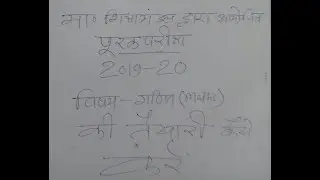 मा० शिक्षा मं० द्वारा आयोजित
पूरक परीक्षा
2019-20
विषय - गणित
की तैयारी कैसे
करें